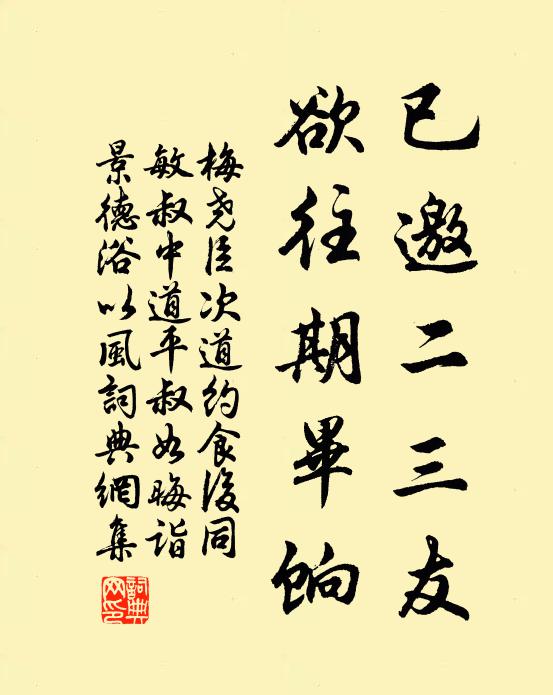 已邀二三友
欲往期畢餉
梅尧臣次道約食後同
敏叔中道平叔如晦詣
景德浴以風詞典網集
詞典网印